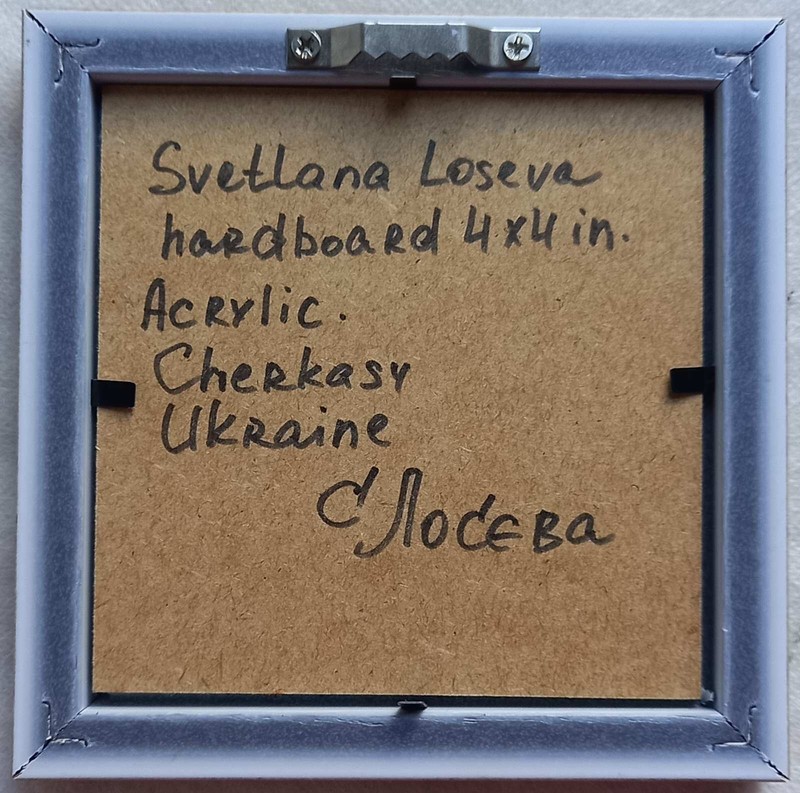 Svetlana Loseva
hardboard 4x4 in.
Acrylic.
Cherkasy
Ukraine
С Лосева